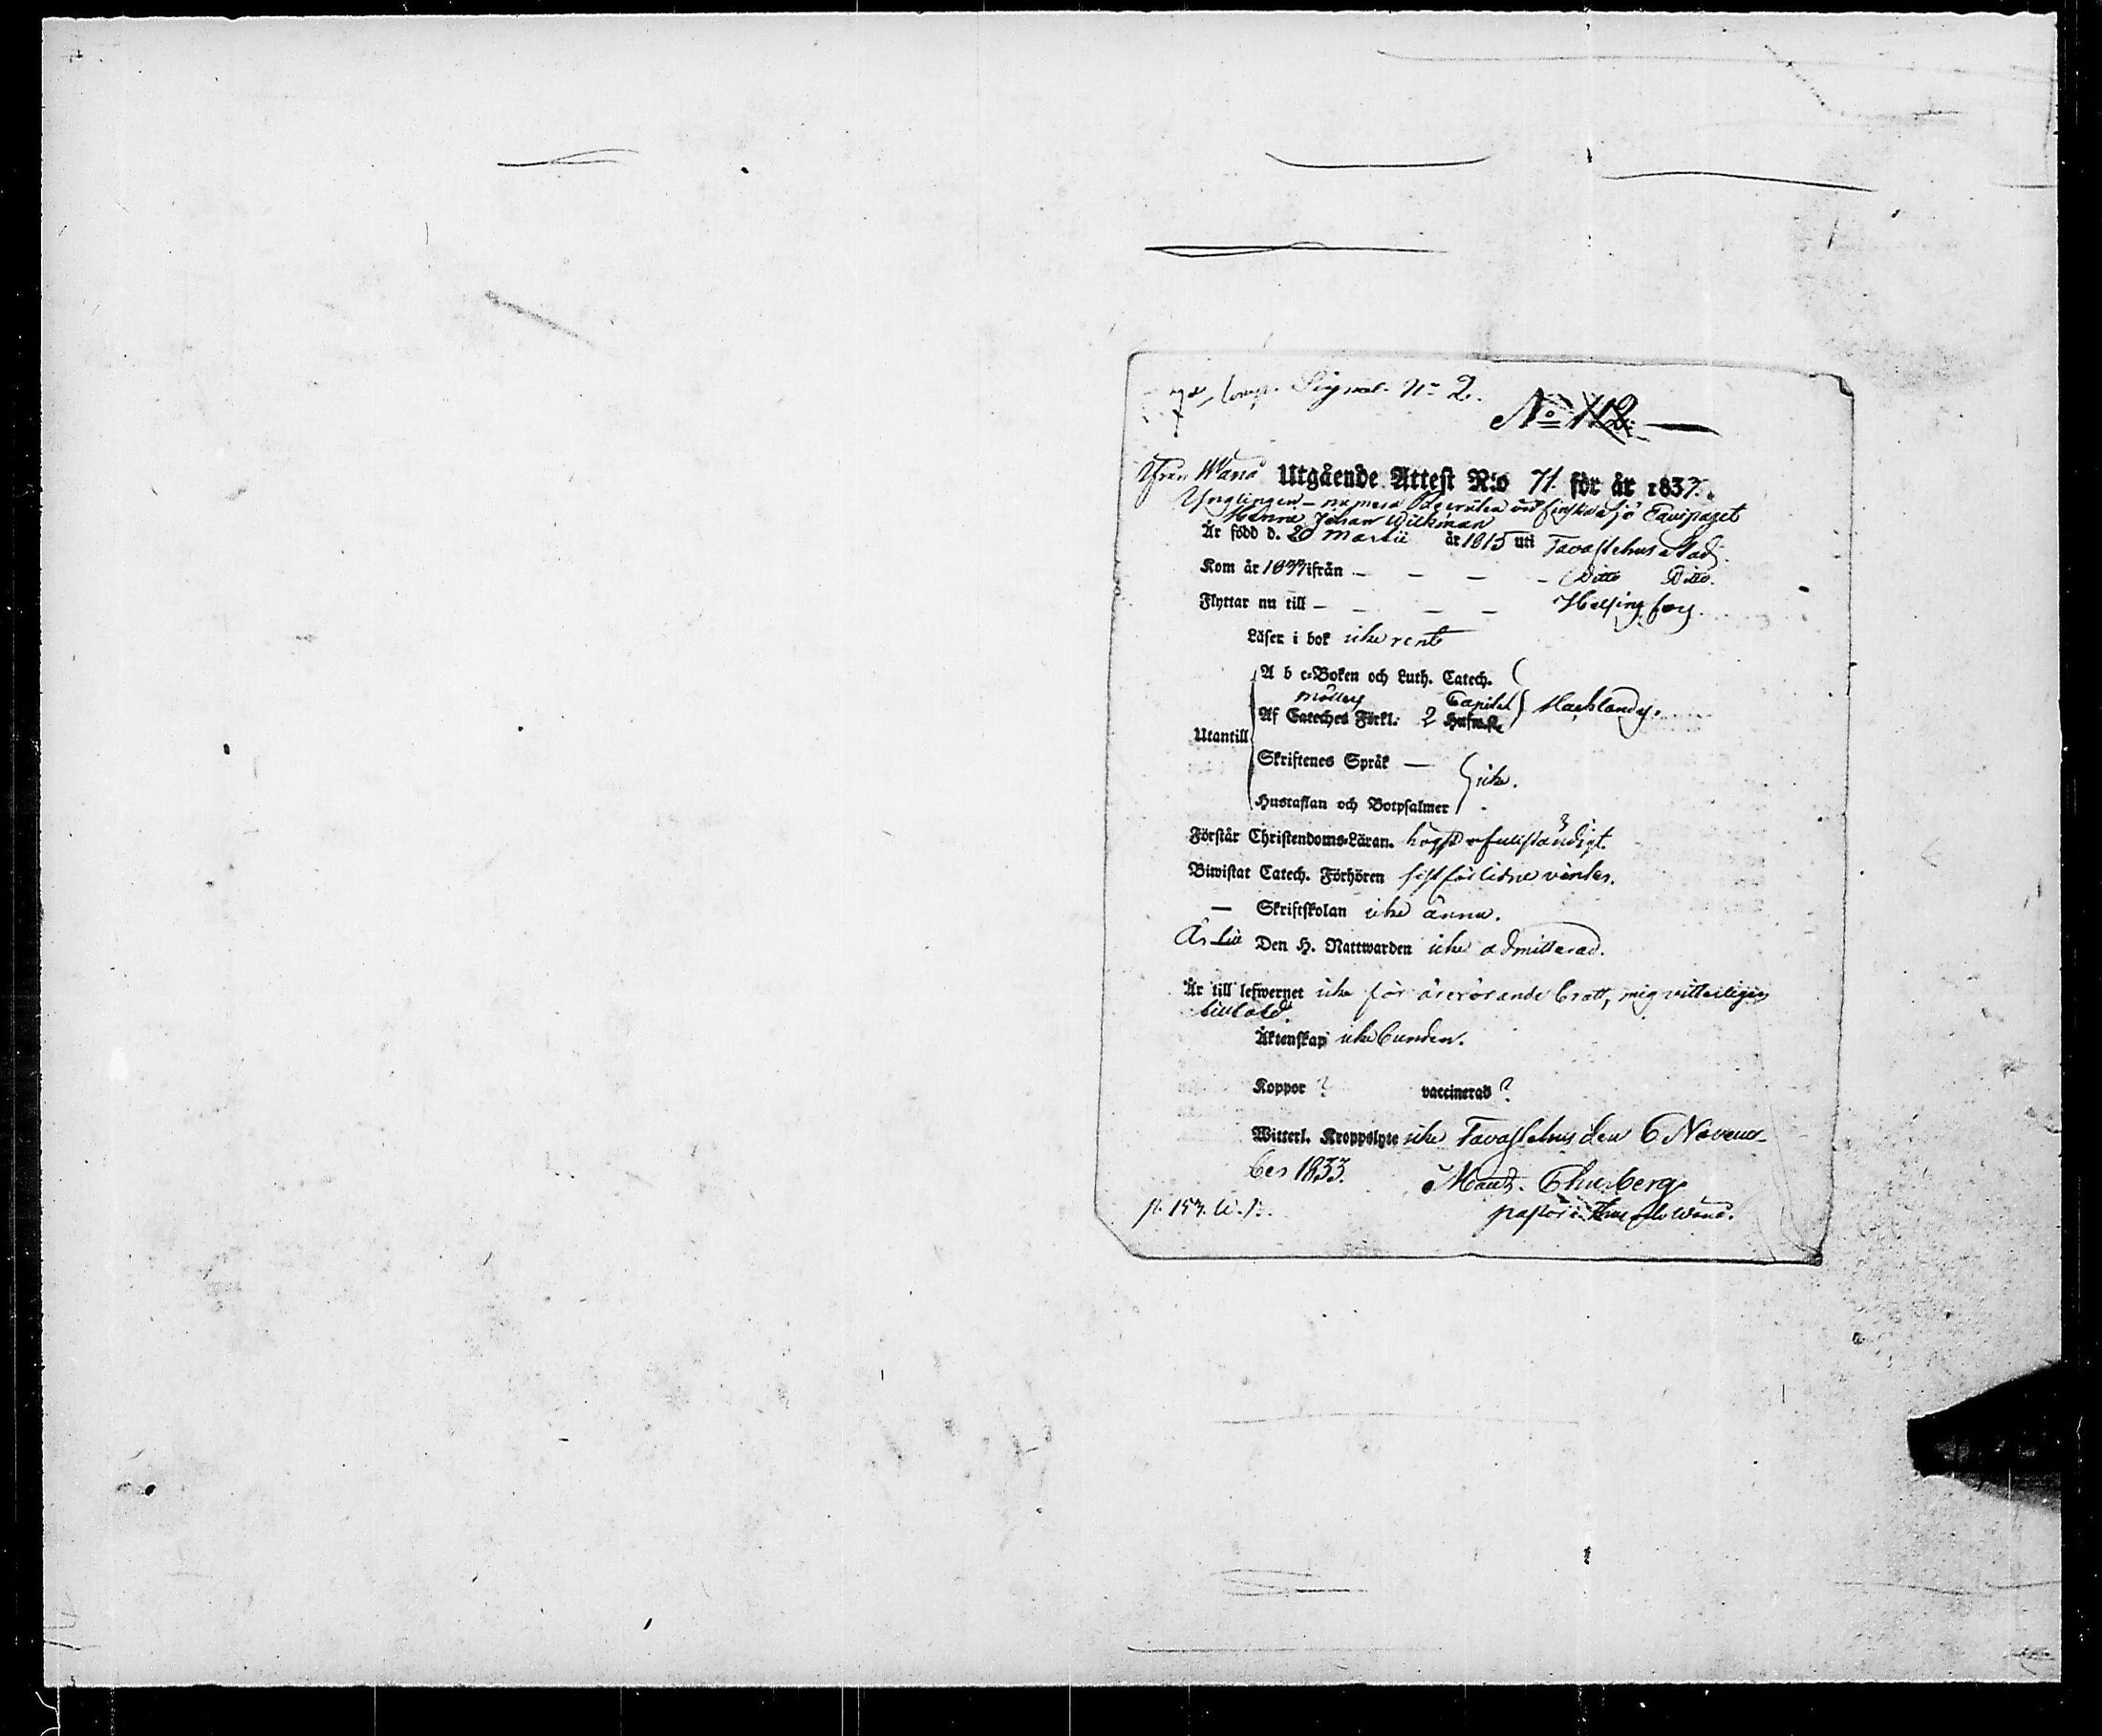 Signal. No 2.
No 112.
Från Wånå Utgående Attest N:o 71. för år 1833.
Ynglingen - numera Recruten vid finska Sjö Equipaget
Henric Johan Wickman
Är född d. 20 Martii år 1815 uti Tavastehus Stad.
Kom år 1833 ifrån - - - - Ditto Ditto.
Flyttar nu till - - - - Helsingfors.
Läser i bok icke rent
A b c-Boken och Luth. Catech.
Möllers Capitel
Af Cateches Förkl. 2
Utantill
Skriftenes Språk — icke.
Hustaflan och Botpsalmer
Förstår Christendoms-Läran. högst ofullständigt.
Biwistat Catech. Förhören sistförlidne vinter.
— Skriftskolan icke ännu.
Är till Den H. Nattwarden icke admitterad.
Är till lefwernet icke för ärerörande brott, mig vitterligen
tilltald.
Äktenskap icke bunden.
Koppor ? vaccinerad ?
Witterl. Kroppslyte icke Tavastehus den 6 Novem-
ber 1833.
Thusberg
p. 153. pastor i Wånå.